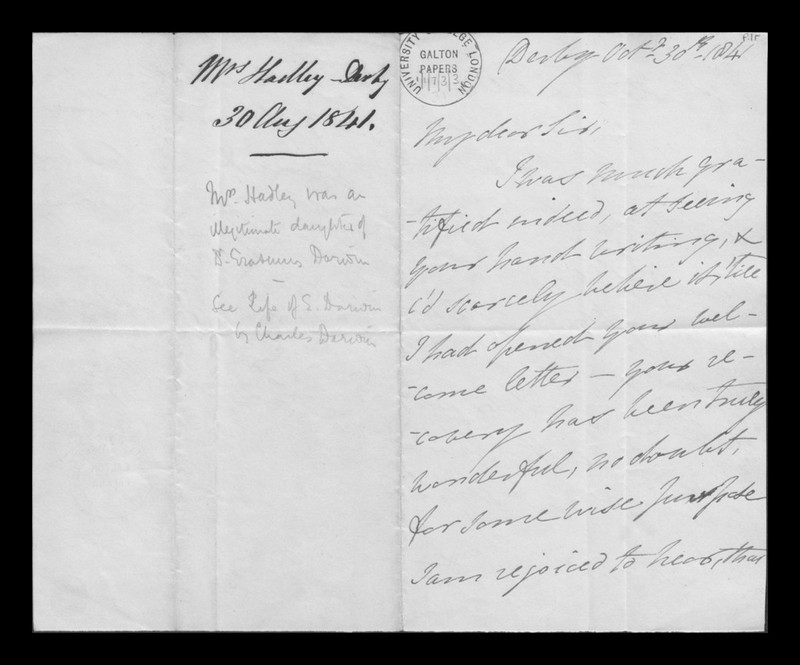 Mrs Hadley Derby
30 Aug 1841.
Mrs. Hadley was an
illegitimate daughter of
Dr. Erasmus Darwin
—
See Life of E. Darwin
by Charles Darwin
UNIVERSITY COLLEGE LONDON
GALTON
PAPERS
Derby Oct 30th 1841
My dear Sir,
I was much gra-
-tified indeed, at seeing
your hand writing, &
c'd scarcely believe it, 'till
I had opened your wel-
-come letter — your re-
-covery has been truly
wonderful, no doubt,
for some wise purpose
I am rejoiced to hear, that